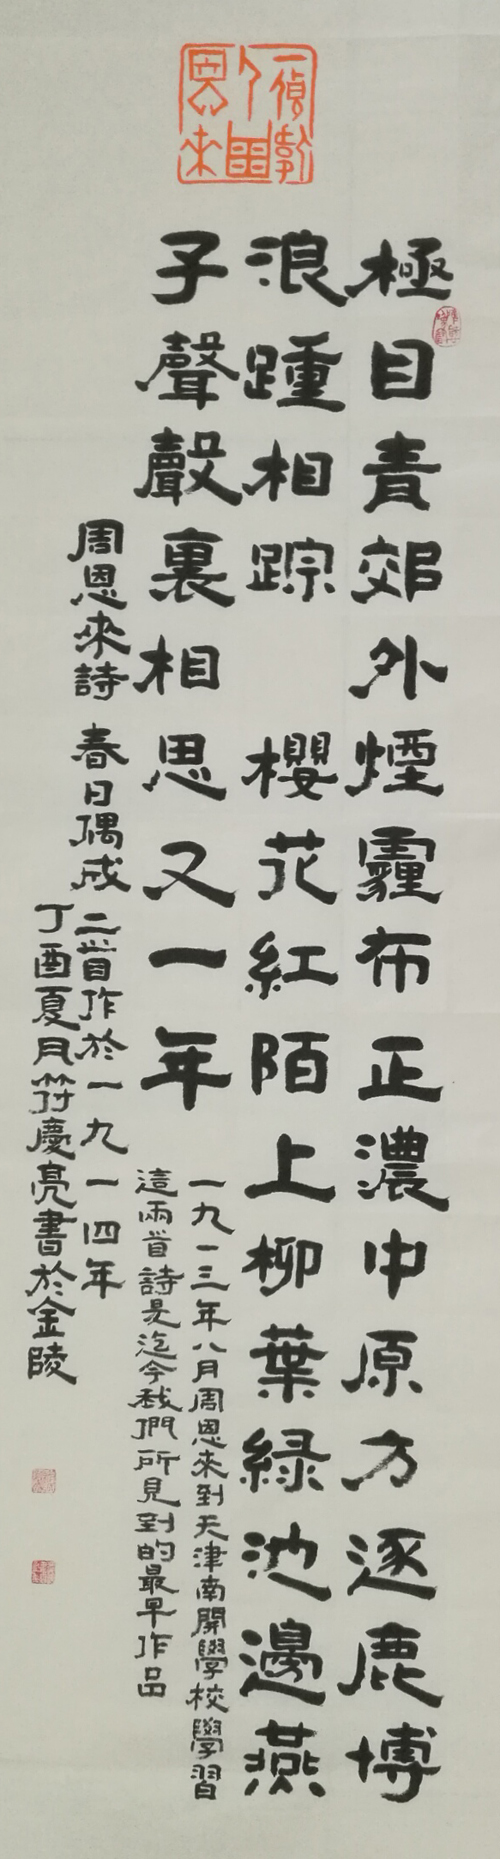 極目青郊外煙霾布正濃中原方逐鹿博
浪踵相踪 櫻花紅陌上柳葉緑池邊燕
子聲聲裏相思又一年
一九一三年八月周恩来到天津南開學校學習
這兩首詩是迄今我們所見到的最早作品
周恩來詩 春日偶成 二首作於一九一四年
丁酉夏月符慶亮書於金陵